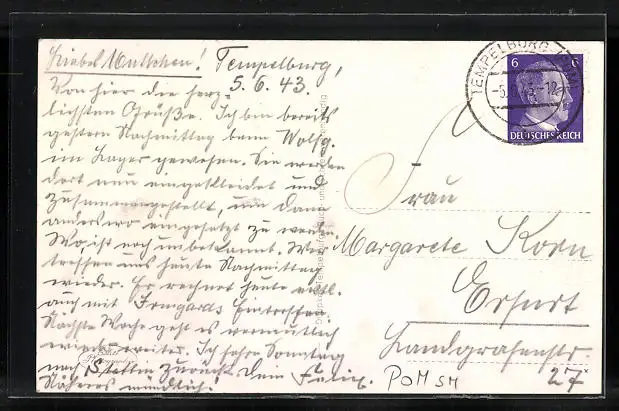 Liebes Muttchen! Tempelburg,
5. 6. 43.
Von hier die herz-
lichsten Grüße. Ich bin bereits
gestern Nachmittag beim Wolfg.
im Lager gewesen. Sie werden
dort neu eingekleidet und
zusammengestellt, um dann
anderswo eingesetzt zu werden.
Wo, ist noch unbekannt. Wir
treffen uns heute Nachmittag
wieder. Er rechnet heute evtl.
auch mit Irmgards Eintreffen.
Nächste Woche geht es vermutlich
weiter. Ich fahre Sonntag
nach Stettin zurück. Dein Felix.
Näheres mündlich!
TEMPELBURG
6 6
DEUTSCHES REICH
Frau
Margarete Korn
Erfurt
Landgrafenstr.
27
POM SH